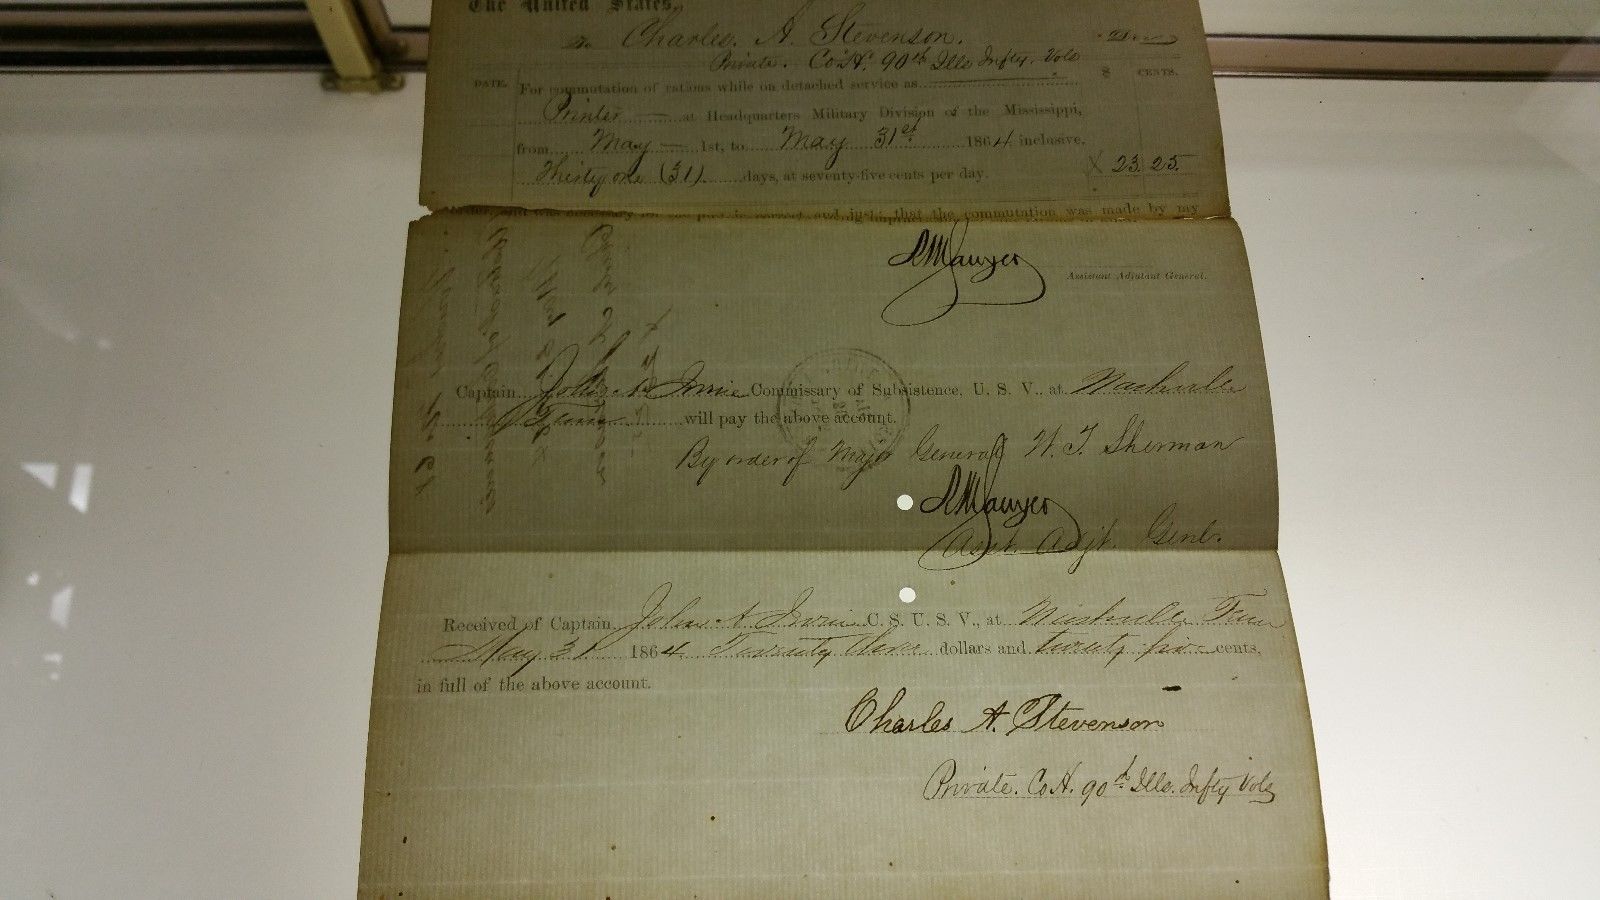 The United States,
To Charles. A. Stevenson.
Private. Co. H. 90th Ills Infty. Vols
DATE. $ CENTS.
For commutation of rations while on detached service as
Printer at Headquarters Military Division of the Mississippi,
from May 1st, to May 31st 1864 inclusive,
Thirty one (31) days, at seventy-five cents per day. 23.25
correct and just; that the commutation was made by my
R M Sawyer
Assistant Adjutant General.
Captain John A. Irvin Commissary of Subsistence, U. S. V., at Nashville
Tenn will pay the above account.
By order of Major General W. T. Sherman
R M Sawyer
Asst. Adjt. Genl.
Received of Captain John A Irvin C. S. U. S. V., at Nashville Tenn
May 31 1864 Twenty three dollars and twenty five cents,
in full of the above account.
Charles A. Stevenson
Private. Co H. 90th Ills. Infty Vols